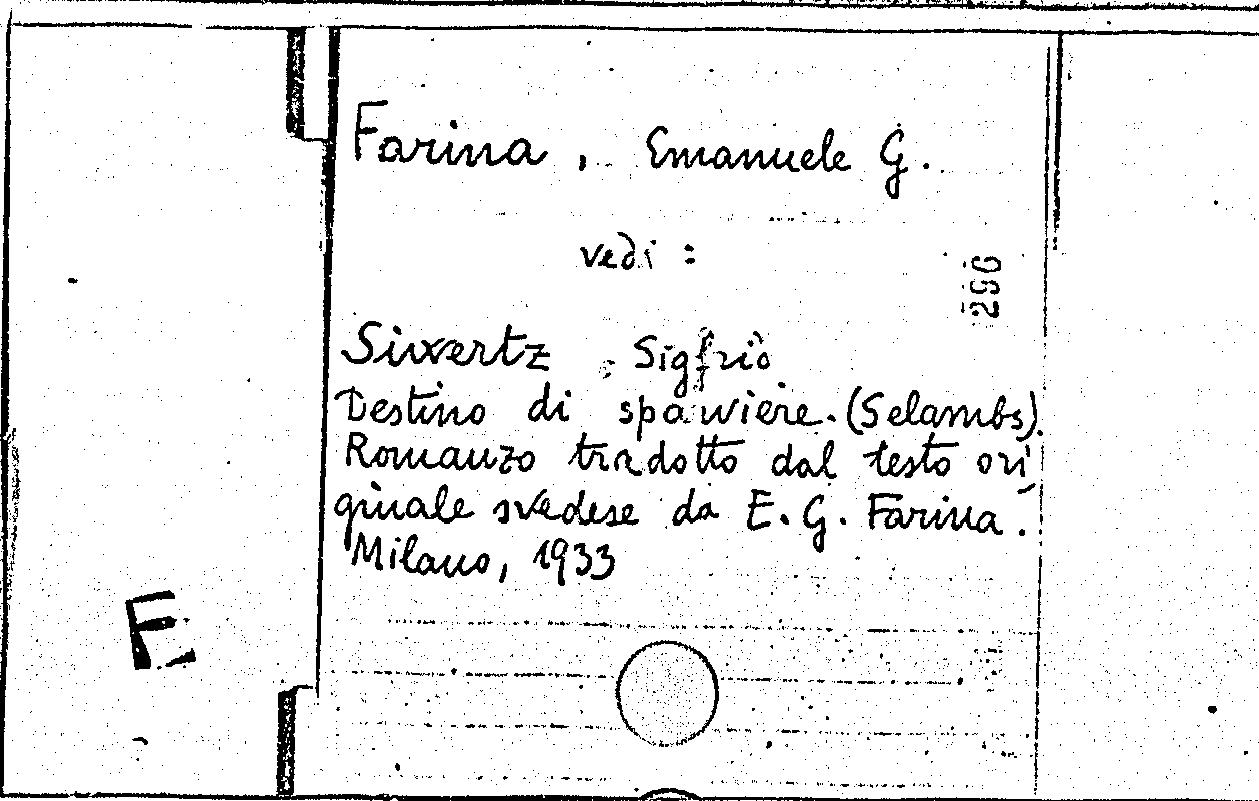 Farina, Emanuele G.
vedi:
296
Siwertz, Sigfrid
Destino di sparviere. (Selambs).
Romanzo tradotto dal testo ori
ginale svedese da E. G. Farina.
Milano, 1933
F